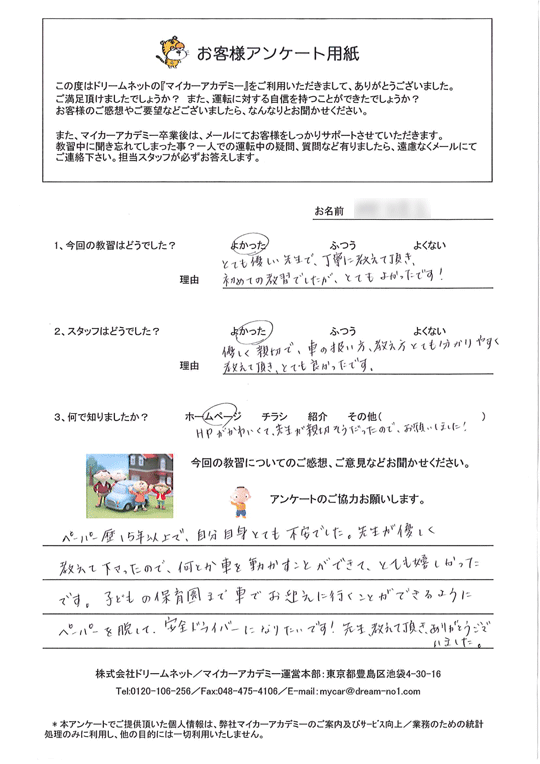 お客様アンケート用紙
この度はドリームネットの『マイカーアカデミー』をご利用いただきまして、ありがとうございました。
ご満足頂けましたでしょうか？ また、運転に対する自信を持つことができたでしょうか？
お客様のご感想やご要望などございましたら、なんなりとお聞かせください。
また、マイカーアカデミー卒業後は、メールにてお客様をしっかりサポートさせていただきます。
教習中に聞き忘れてしまった事？一人での運転中の疑問、質問など有りましたら、遠慮なくメールにて
ご連絡下さい。担当スタッフが必ずお答えします。
お名前
1、今回の教習はどうでした？ よかった ふつう よくない
とても優しい先生で、丁寧に教えて頂き、
理由 初めての教習でしたが、とてもよかったです！
2、スタッフはどうでした？ よかった ふつう よくない
優しく親切で、車の扱い方、教え方とても分かりやすく
理由 教えて頂き、とても良かったです。
3、何で知りましたか？ ホームページ チラシ 紹介 その他( )
HPがかわいくて、先生が親切そうだったので、お願いしました！
今回の教習についてのご感想、ご意見などお聞かせください。
アンケートのご協力お願いします。
ペーパー歴15年以上で、自分自身とても不安でした。先生が優しく
教えて下さったので、何とか車を動かすことができて、とても嬉しかった
です。子どもの保育園まで車でお迎えに行くことができるように
ペーパーを脱して、安全ドライバーになりたいです！先生、教えて頂き、ありがとうござ
いました。
株式会社ドリームネット／マイカーアカデミー運営本部：東京都豊島区池袋4-30-16
Tel:0120-106-256／Fax:048-475-4106／E-mail：mycar@dream-no1.com
＊本アンケートでご提供頂いた個人情報は、弊社マイカーアカデミーのご案内及びサービス向上／業務のための統計
処理のみに利用し、他の目的には一切利用いたしません。